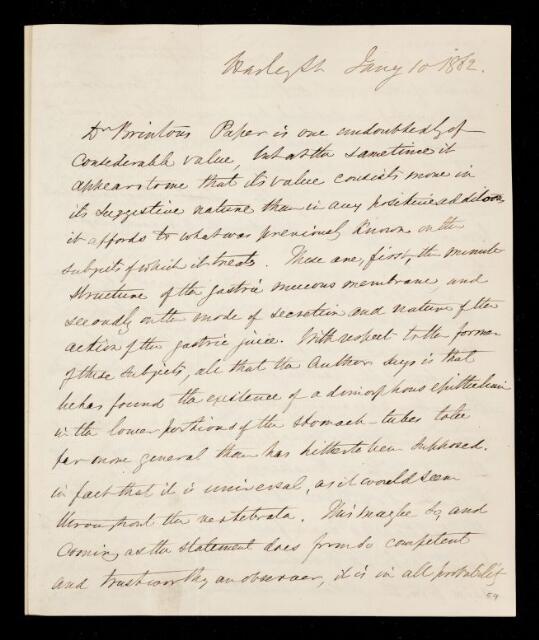 Harley St Jany 10 1862.
Dr Brintons Paper is one undoubtedly of
considerable value, but at the same time it
appears to me that its value consists more in
its suggestive nature than in any positive additions
it affords to what was previously known on the
subjects of which it treats. These are, first, the minute
structure of the gastric mucous membrane, and
secondly on the mode of secretion and nature of the
action of the gastric juice. With respect to the former
of these subjects, all that the Author says is that
he has found the existence of a dimorphous epithelium
in the lower portions of the stomach-tubes to be
far more general than has hitherto been supposed.
in fact that it is universal, as it would seem
throughout the vertebrata. This may be so, and
coming as the statement does from so competent
and trustworthy an observer, it is in all probability
59